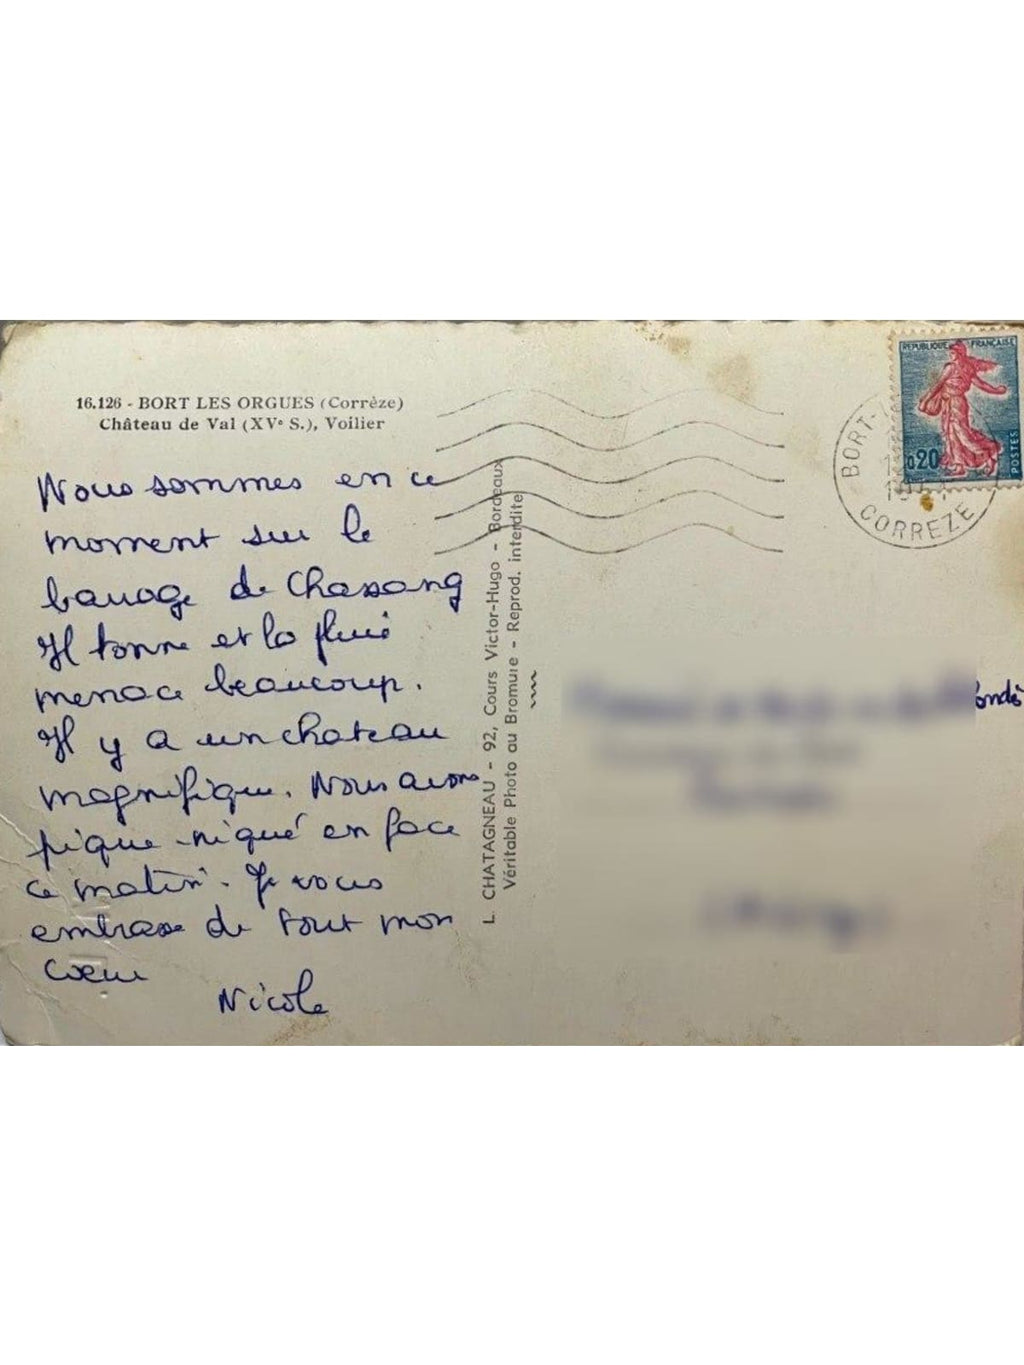 16.126 - BORT LES ORGUES (Corrèze)
Château de Val (XVe S.), Voilier
Nous sommes en ce
moment sur le
barrage de Chassang
Il tonne et la pluie
menace beaucoup.
Il y a un chateau
magnifique. Nous avons
pique-niqué en face
ce matin. Je vous
embrasse de tout mon
coeur
Nicole
L. CHATAGNEAU - 92, Cours Victor-Hugo - Bordeaux
Véritable Photo au Bromure - Reprod. interdite
REPUBLIQUE FRANÇAISE
0,20
POSTES
BORT-
CORREZE